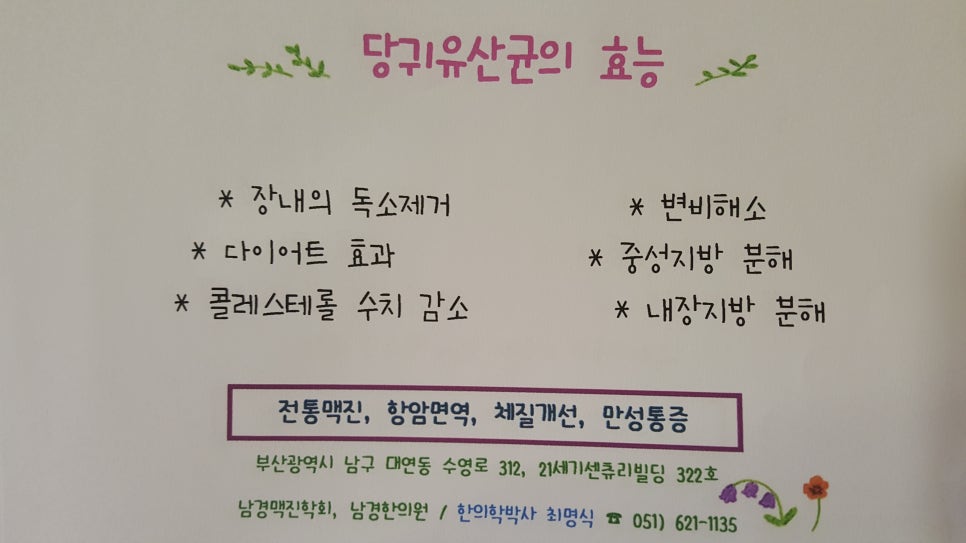 당귀유산균의 효능
* 장내의 독소제거
* 변비해소
* 다이어트 효과
* 중성지방 분해
* 콜레스테롤 수치 감소
* 내장지방 분해
전통맥진, 항암면역, 체질개선, 만성통증
부산광역시 남구 대연동 수영로 312, 21세기센츄리빌딩 322호
남경맥진학회, 남경한의원 / 한의학박사 최명식 ☎ 051) 621-1135